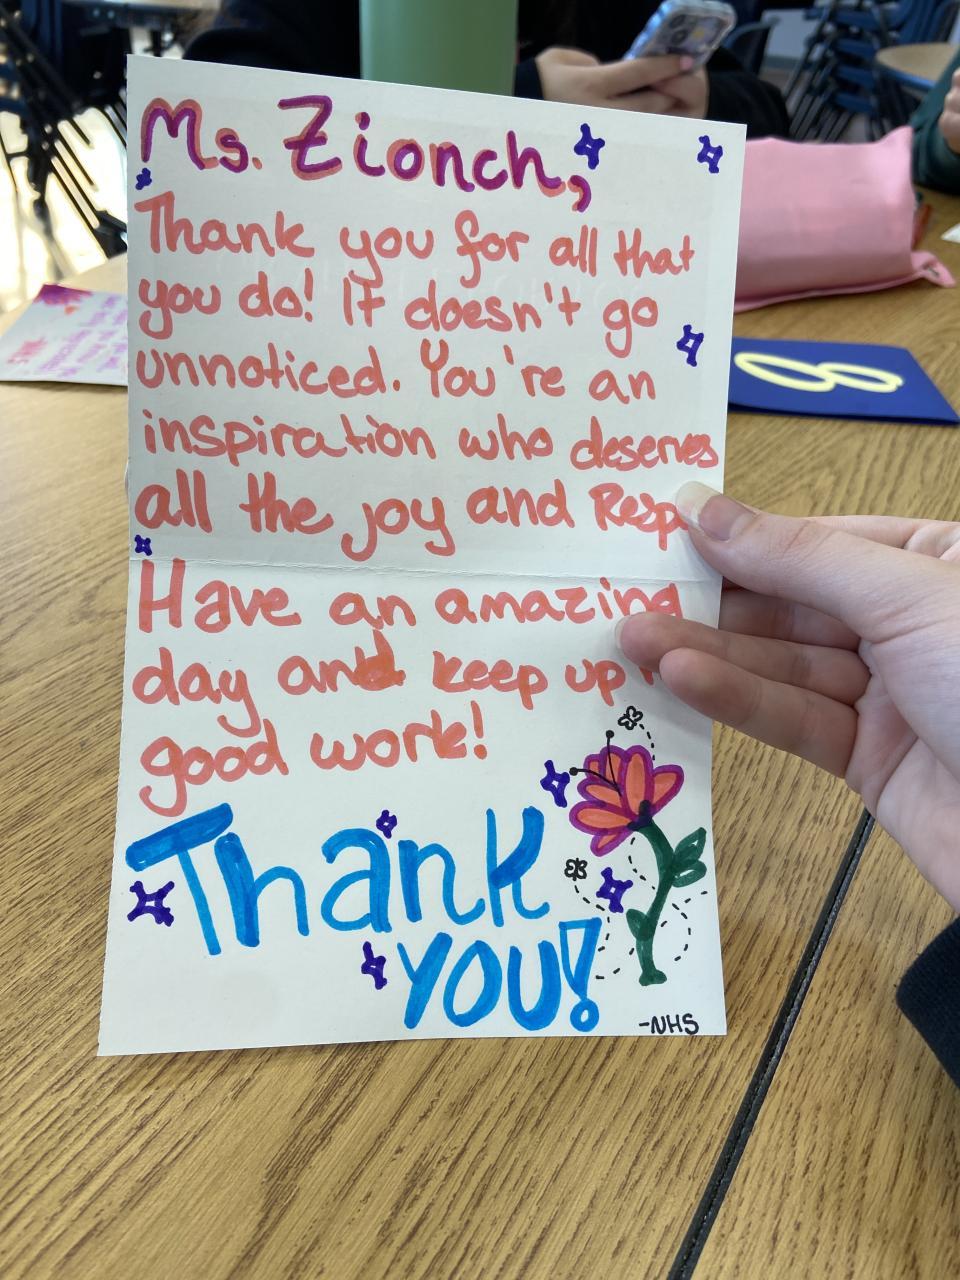 Ms. Zionch,
Thank you for all that
you do! It doesn't go
unnoticed. You're an
inspiration who deserves
all the joy and Resp
Have an amazing
day and keep up
good work!
Thank
YOU!
-NHS